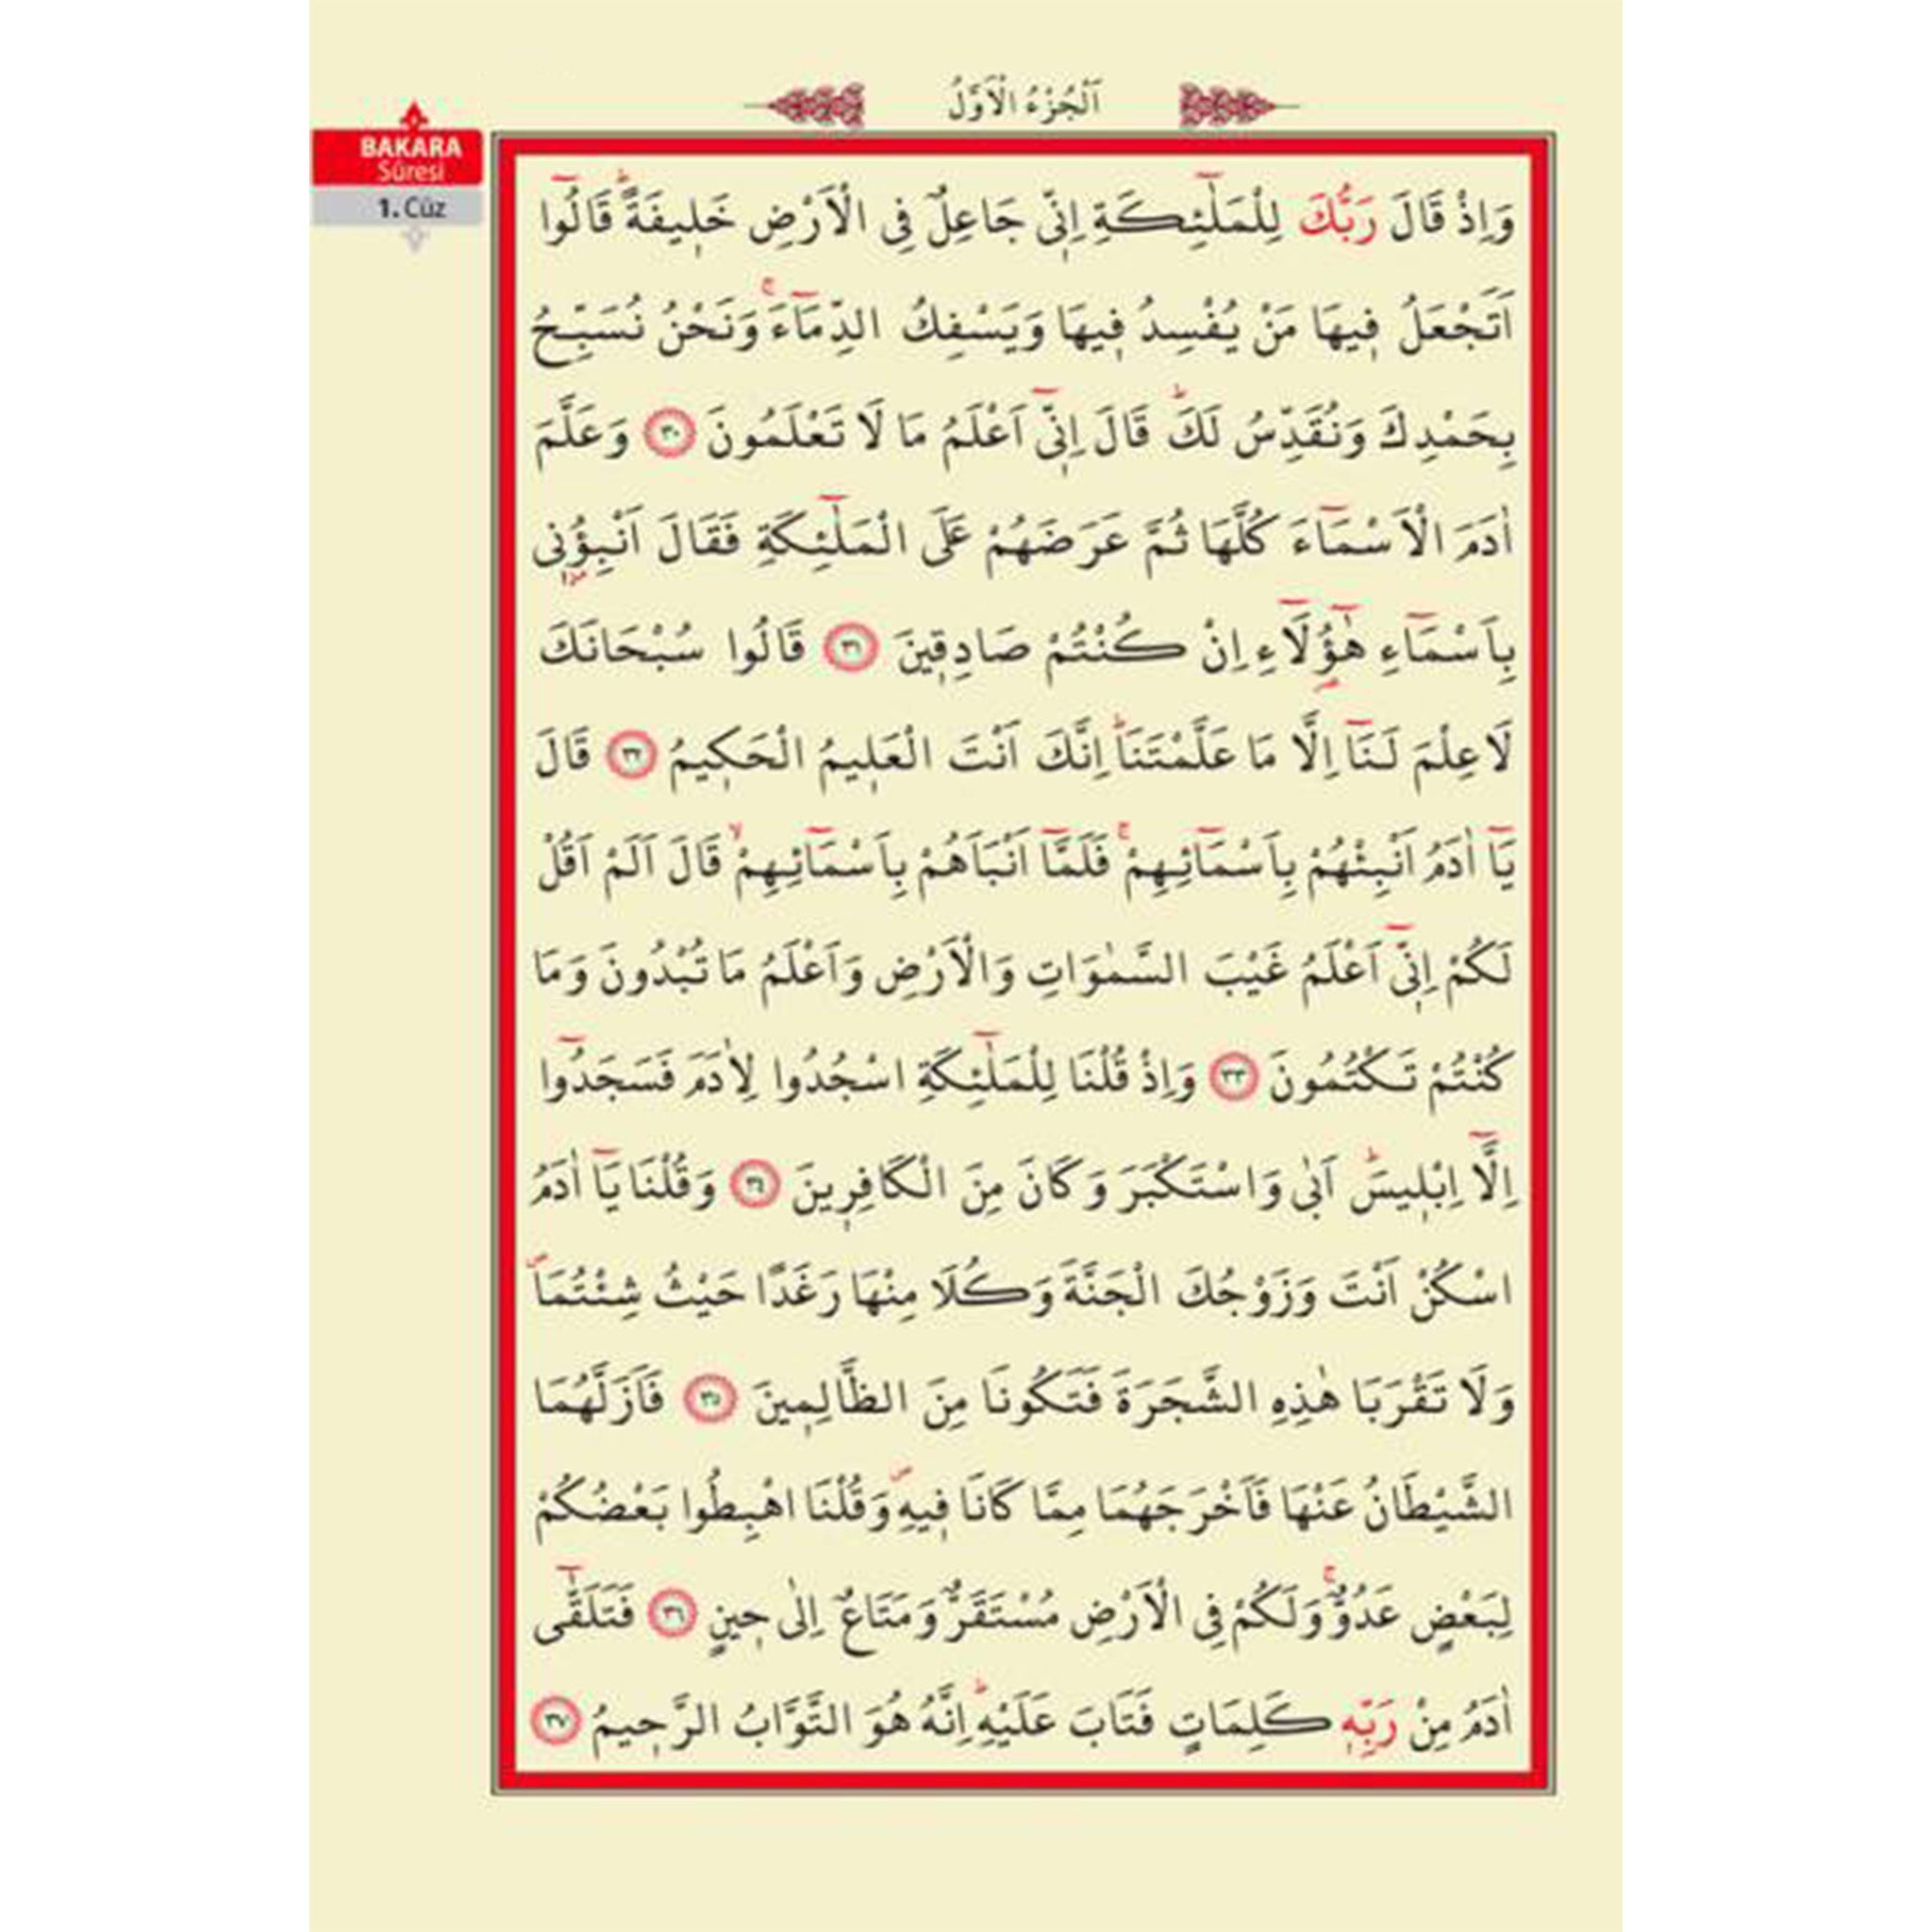 اَلْجُزْءُ الْاَوَّلُ
BAKARA
Sûresi
1. Cüz
وَاِذْ قَالَ رَبُّكَ لِلْمَلٰٓئِكَةِ اِنّ۪ي جَاعِلٌ فِي الْاَرْضِ خَل۪يفَةًۜ قَالُٓوا
اَتَجْعَلُ ف۪يهَا مَنْ يُفْسِدُ ف۪يهَا وَيَسْفِكُ الدِّمَٓاءَۚ وَنَحْنُ نُسَبِّحُ
بِحَمْدِكَ وَنُقَدِّسُ لَكَۜ قَالَ اِنّ۪ٓي اَعْلَمُ مَا لَا تَعْلَمُونَ ﴿٣٠﴾ وَعَلَّمَ
اٰدَمَ الْاَسْمَٓاءَ كُلَّهَا ثُمَّ عَرَضَهُمْ عَلَى الْمَلٰٓئِكَةِ فَقَالَ اَنْبِؤُ۫ن۪ي
بِاَسْمَٓاءِ هٰٓؤُ۬لَٓاءِ اِنْ كُنْتُمْ صَادِق۪ينَ ﴿٣١﴾ قَالُوا سُبْحَانَكَ
لَا عِلْمَ لَـنَٓا اِلَّا مَا عَلَّمْتَنَاۜ اِنَّكَ اَنْتَ الْعَل۪يمُ الْحَك۪يمُ ﴿٣٢﴾ قَالَ
يَٓا اٰدَمُ اَنْبِئْهُمْ بِاَسْمَٓائِهِمْۚ فَلَمَّٓا اَنْبَاَهُمْ بِاَسْمَٓائِهِمْۙ قَالَ اَلَمْ اَقُلْ
لَكُمْ اِنّ۪ٓي اَعْلَمُ غَيْبَ السَّمٰوَاتِ وَالْاَرْضِ وَاَعْلَمُ مَا تُبْدُونَ وَمَا
كُنْتُمْ تَكْتُمُونَ ﴿٣٣﴾ وَاِذْ قُلْنَا لِلْمَلٰٓئِكَةِ اسْجُدُوا لِاٰدَمَ فَسَجَدُٓوا
اِلَّٓا اِبْل۪يسَۜ اَبٰى وَاسْتَكْبَرَ وَكَانَ مِنَ الْكَافِر۪ينَ ﴿٣٤﴾ وَقُلْنَا يَٓا اٰدَمُ
اسْكُنْ اَنْتَ وَزَوْجُكَ الْجَنَّةَ وَكُلَا مِنْهَا رَغَدًا حَيْثُ شِئْتُمَاۖ
وَلَا تَقْرَبَا هٰذِهِ الشَّجَرَةَ فَتَكُونَا مِنَ الظَّالِم۪ينَ ﴿٣٥﴾ فَاَزَلَّهُمَا
الشَّيْطَانُ عَنْهَا فَاَخْرَجَهُمَا مِمَّا كَانَا ف۪يهِۖ وَقُلْنَا اهْبِطُوا بَعْضُكُمْ
لِبَعْضٍ عَدُوٌّۚ وَلَكُمْ فِي الْاَرْضِ مُسْتَقَرٌّ وَمَتَاعٌ اِلٰى ح۪ينٍ ﴿٣٦﴾ فَتَلَقّٰٓى
اٰدَمُ مِنْ رَبِّه۪ كَلِمَاتٍ فَتَابَ عَلَيْهِۜ اِنَّهُ هُوَ التَّوَّابُ الرَّح۪يمُ ﴿٣٧﴾